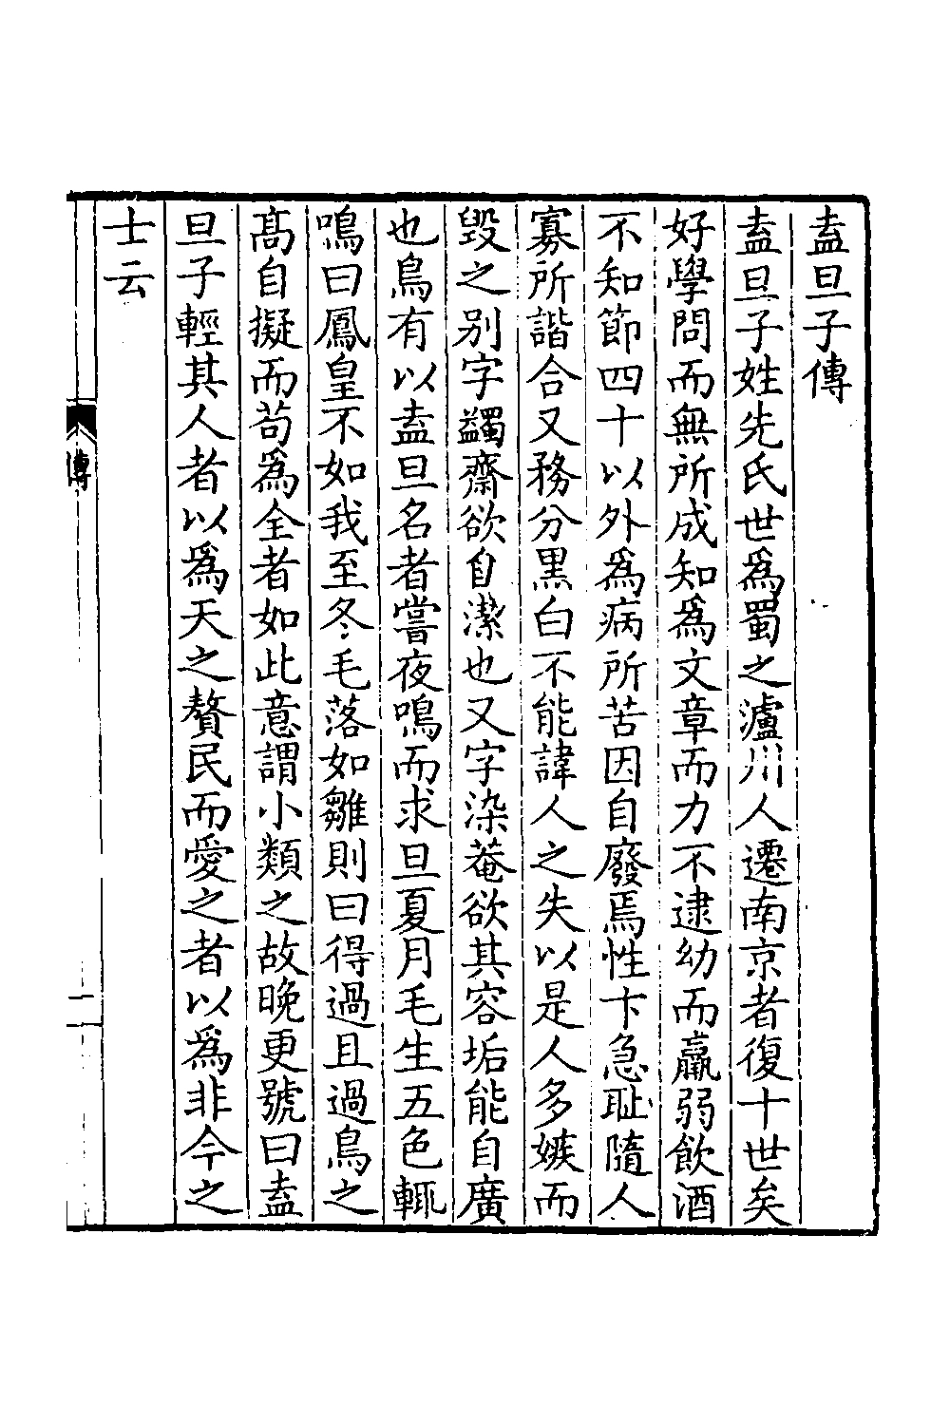 盍旦子傳
盍旦子姓先氏世爲蜀之瀘川人遷南京者復十世矣
好學問而無所成知爲文章而力不逮幼而羸弱飲酒
不知節四十以外爲病所苦因自廢焉性卞急耻隨人
寡所諧合又務分黒白不能諱人之失以是人多嫉而
毀之别字蠲齋欲自潔也又字染菴欲其容垢能自廣
也鳥有以盍旦名者嘗夜鳴而求旦夏月毛生五色輒
鳴曰鳳皇不如我至冬毛落如雛則曰得過且過鳥之
髙自擬而苟爲全者如此意謂小類之故晚更號曰盍
旦子輕其人者以爲天之贅民而愛之者以爲非今之
士云
傳
一